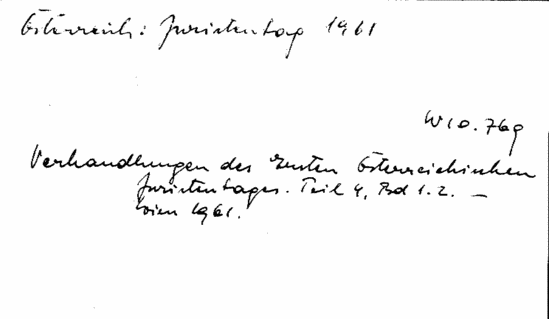 Österreich: Juristentag 1961
W 10. 769
Verhandlungen des Ersten Österreichischen
Juristentages. Teil 4, Bd 1. 2. —
Wien 1961.